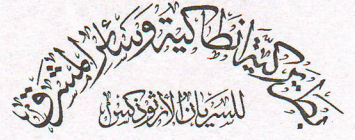 بطريركية انطاكية وسائر المشرق
للسريان الأرثوذكس